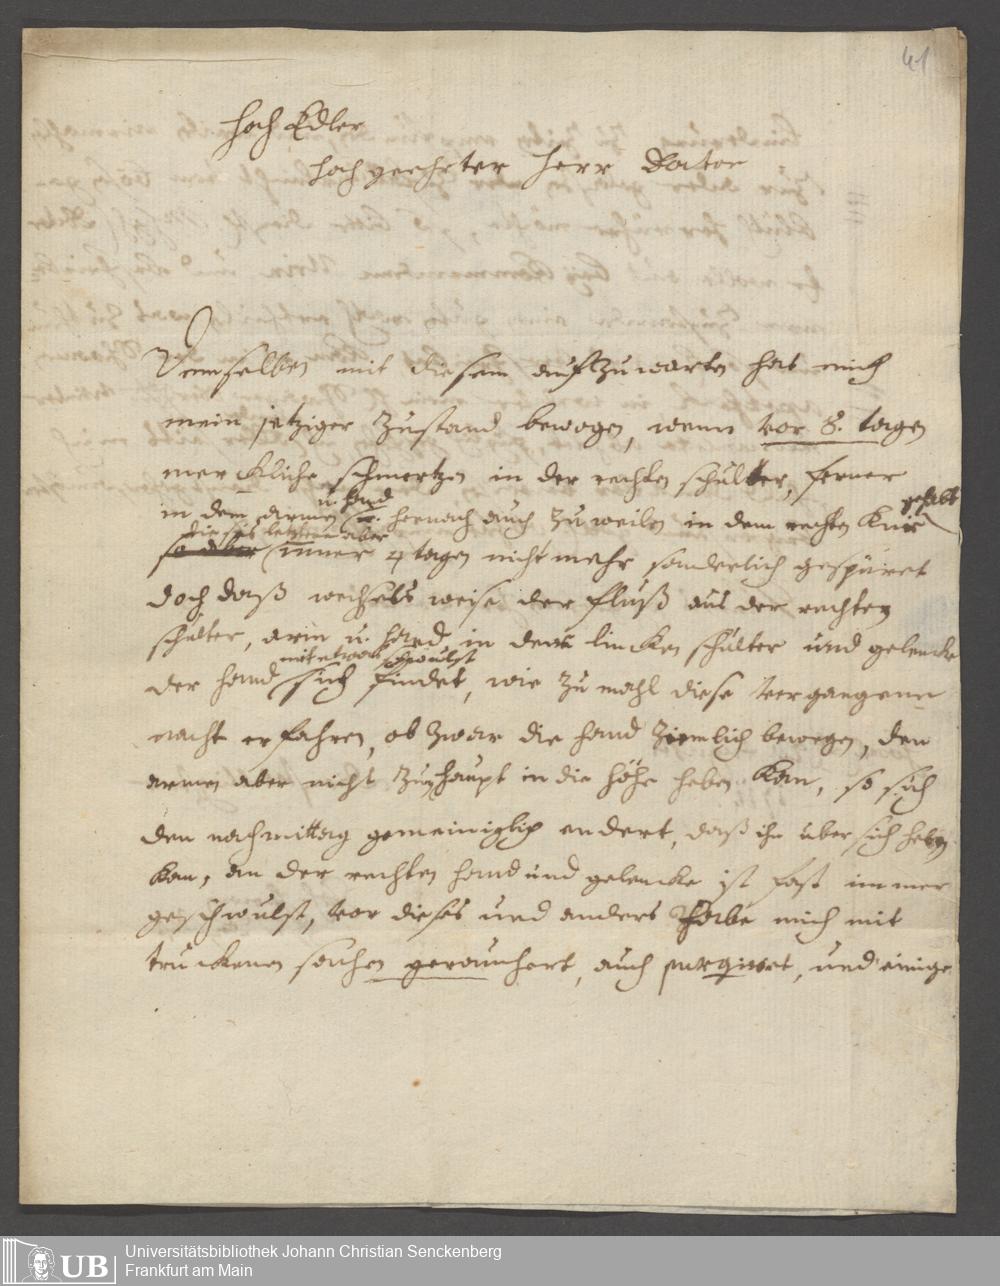 41
Hoch Edler
Hoch geehrter Herr Doctor
Demselben mit diesem auffzuwarten hat mich
mein jetziger Zustand bewogen, wenn vor 8. tagen
merckliche schmertzen in der rechten schulter, ferner
in dem armen u. hand hernach auch zuweilen in dem rechten Knie gehabt
dieses letztere aber inner 4 tagen nicht mehr sonderlich gespüret
doch daß wechsels weise der fluß aus der rechten
schulter, arm u. hand in den lincken schulter und gelencke
der hand mit etwas geschwulst sich findet, wie zumahl diese vergangene
nacht erfahren, ob zwar die hand ziemlich bewegen, den
armen aber nicht zum haupt in die höhe heben kan, so sich
den nachmittag gemeiniglich endert, daß ihn uber sich heben
kan, an der rechten hand und gelencke ist fast immer
geschwulst, vor dieses und anders habe mich mit
truckenen sachen geräuchert, auch purgiret, und einige
Universitätsbibliothek Johann Christian Senckenberg
Frankfurt am Main
UB